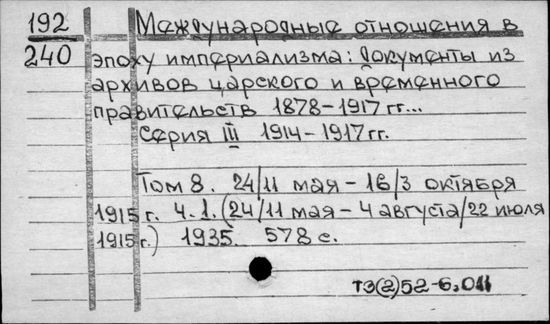 192
240
Международные отношения в
эпоху империализма: Документы из
архивов царского и временного
правительств 1878-1917 гг...
Серия III 1914-1917 гг.
Том 8. 24/11 мая - 16/3 октября
1915 г. Ч.1. (24/11 мая - 4 августа/22 июля
1915 г.) 1935. 578 с.
т3(2)52-6,011